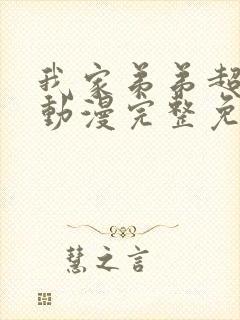 我家弟弟超
動漫完整免
慧之言